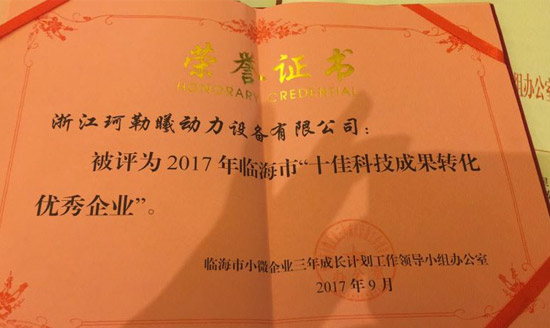 荣誉证书
HONORARY CREDENTIAL
浙江珂勒曦动力设备有限公司：
被评为2017年临海市“十佳科技成果转化
优秀企业”。
临海市小微企业三年成长计划工作领导小组办公室
2017年9月
组办公室